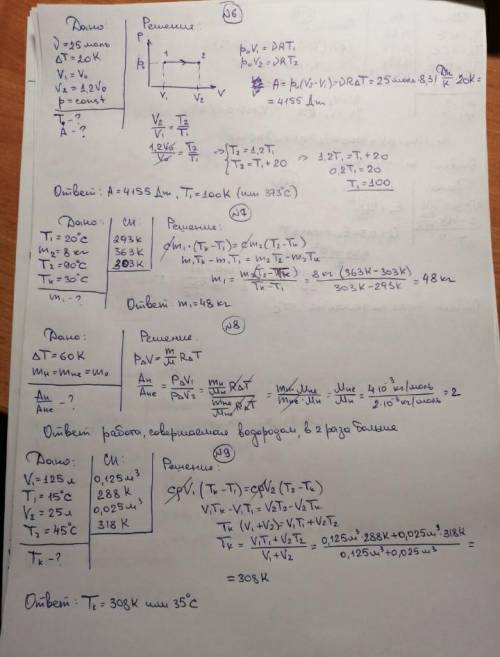 №6
Дано
ν = 25 моль
ΔT = 20K
V₁ = V₀
V₂ = 1,2V₀
p = const
T₁ - ?
A - ?
Решение:
P
P₀
1
2
V₁
V₂
V
p₀V₁ = νRT₁
p₀V₂ = νRT₂
A = p₀(V₂-V₁) = νRΔT = 25 моль · 8,31 Дж/К · 20K =
= 4155 Дж
V₂/V₁ = T₂/T₁
1,2V₀/V₀ = T₂/T₁ → { T₂ = 1,2T₁
T₂ = T₁ + 20 ⇒ 1,2T₁ = T₁ + 20
0,2T₁ = 20
T₁ = 100
Ответ: A = 4155 Дж, T₁ = 100K (или 373°C)
№7
Дано:
T₁ = 20°C
m₂ = 8 кг
T₂ = 90°C
Tк = 30°C
m₁ - ?
СИ:
293K
363K
303K
Решение:
cm₁·(Tк-T₁) = cm₂(T₂-Tк)
m₁Tк - m₁T₁ = m₂T₂ - m₂Tк
m₁ = m₂(T₂-Tк)/(Tк-T₁) = 8 кг (363K-303K)/(303K-293K) = 48 кг
Ответ m₁ = 48 кг
№8
Дано:
ΔT = 60K
mн = mне = m₀
Aн/Aне - ?
Решение:
pΔV = m/M RΔT
Aн/Aне = PΔV₁/PΔV₂ = (mн/Mн RΔT)/(mне/Mне RΔT) = mн·Mне/mне·Mн = Mне/Mн = 4·10⁻³ кг/моль/2·10⁻³ кг/моль = 2
Ответ работа, совершаемая водородом, в 2 раза больше
№9
Дано:
V₁ = 125 л
T₁ = 15°C
V₂ = 25 л
T₂ = 45°C
Tк - ?
СИ:
0,125 м³
288K
0,025 м³
318K
Решение:
cρV₁(Tк-T₁) = cρV₂(T₂-Tк)
V₁Tк - V₁T₁ = V₂T₂ - V₂Tк
Tк (V₁+V₂) = V₁T₁ + V₂T₂
Tк = (V₁T₁+V₂T₂)/(V₁+V₂) = (0,125 м³·288K + 0,025 м³·318K)/(0,125 м³ + 0,025 м³) =
= 308K
Ответ: Tк = 308K или 35°C